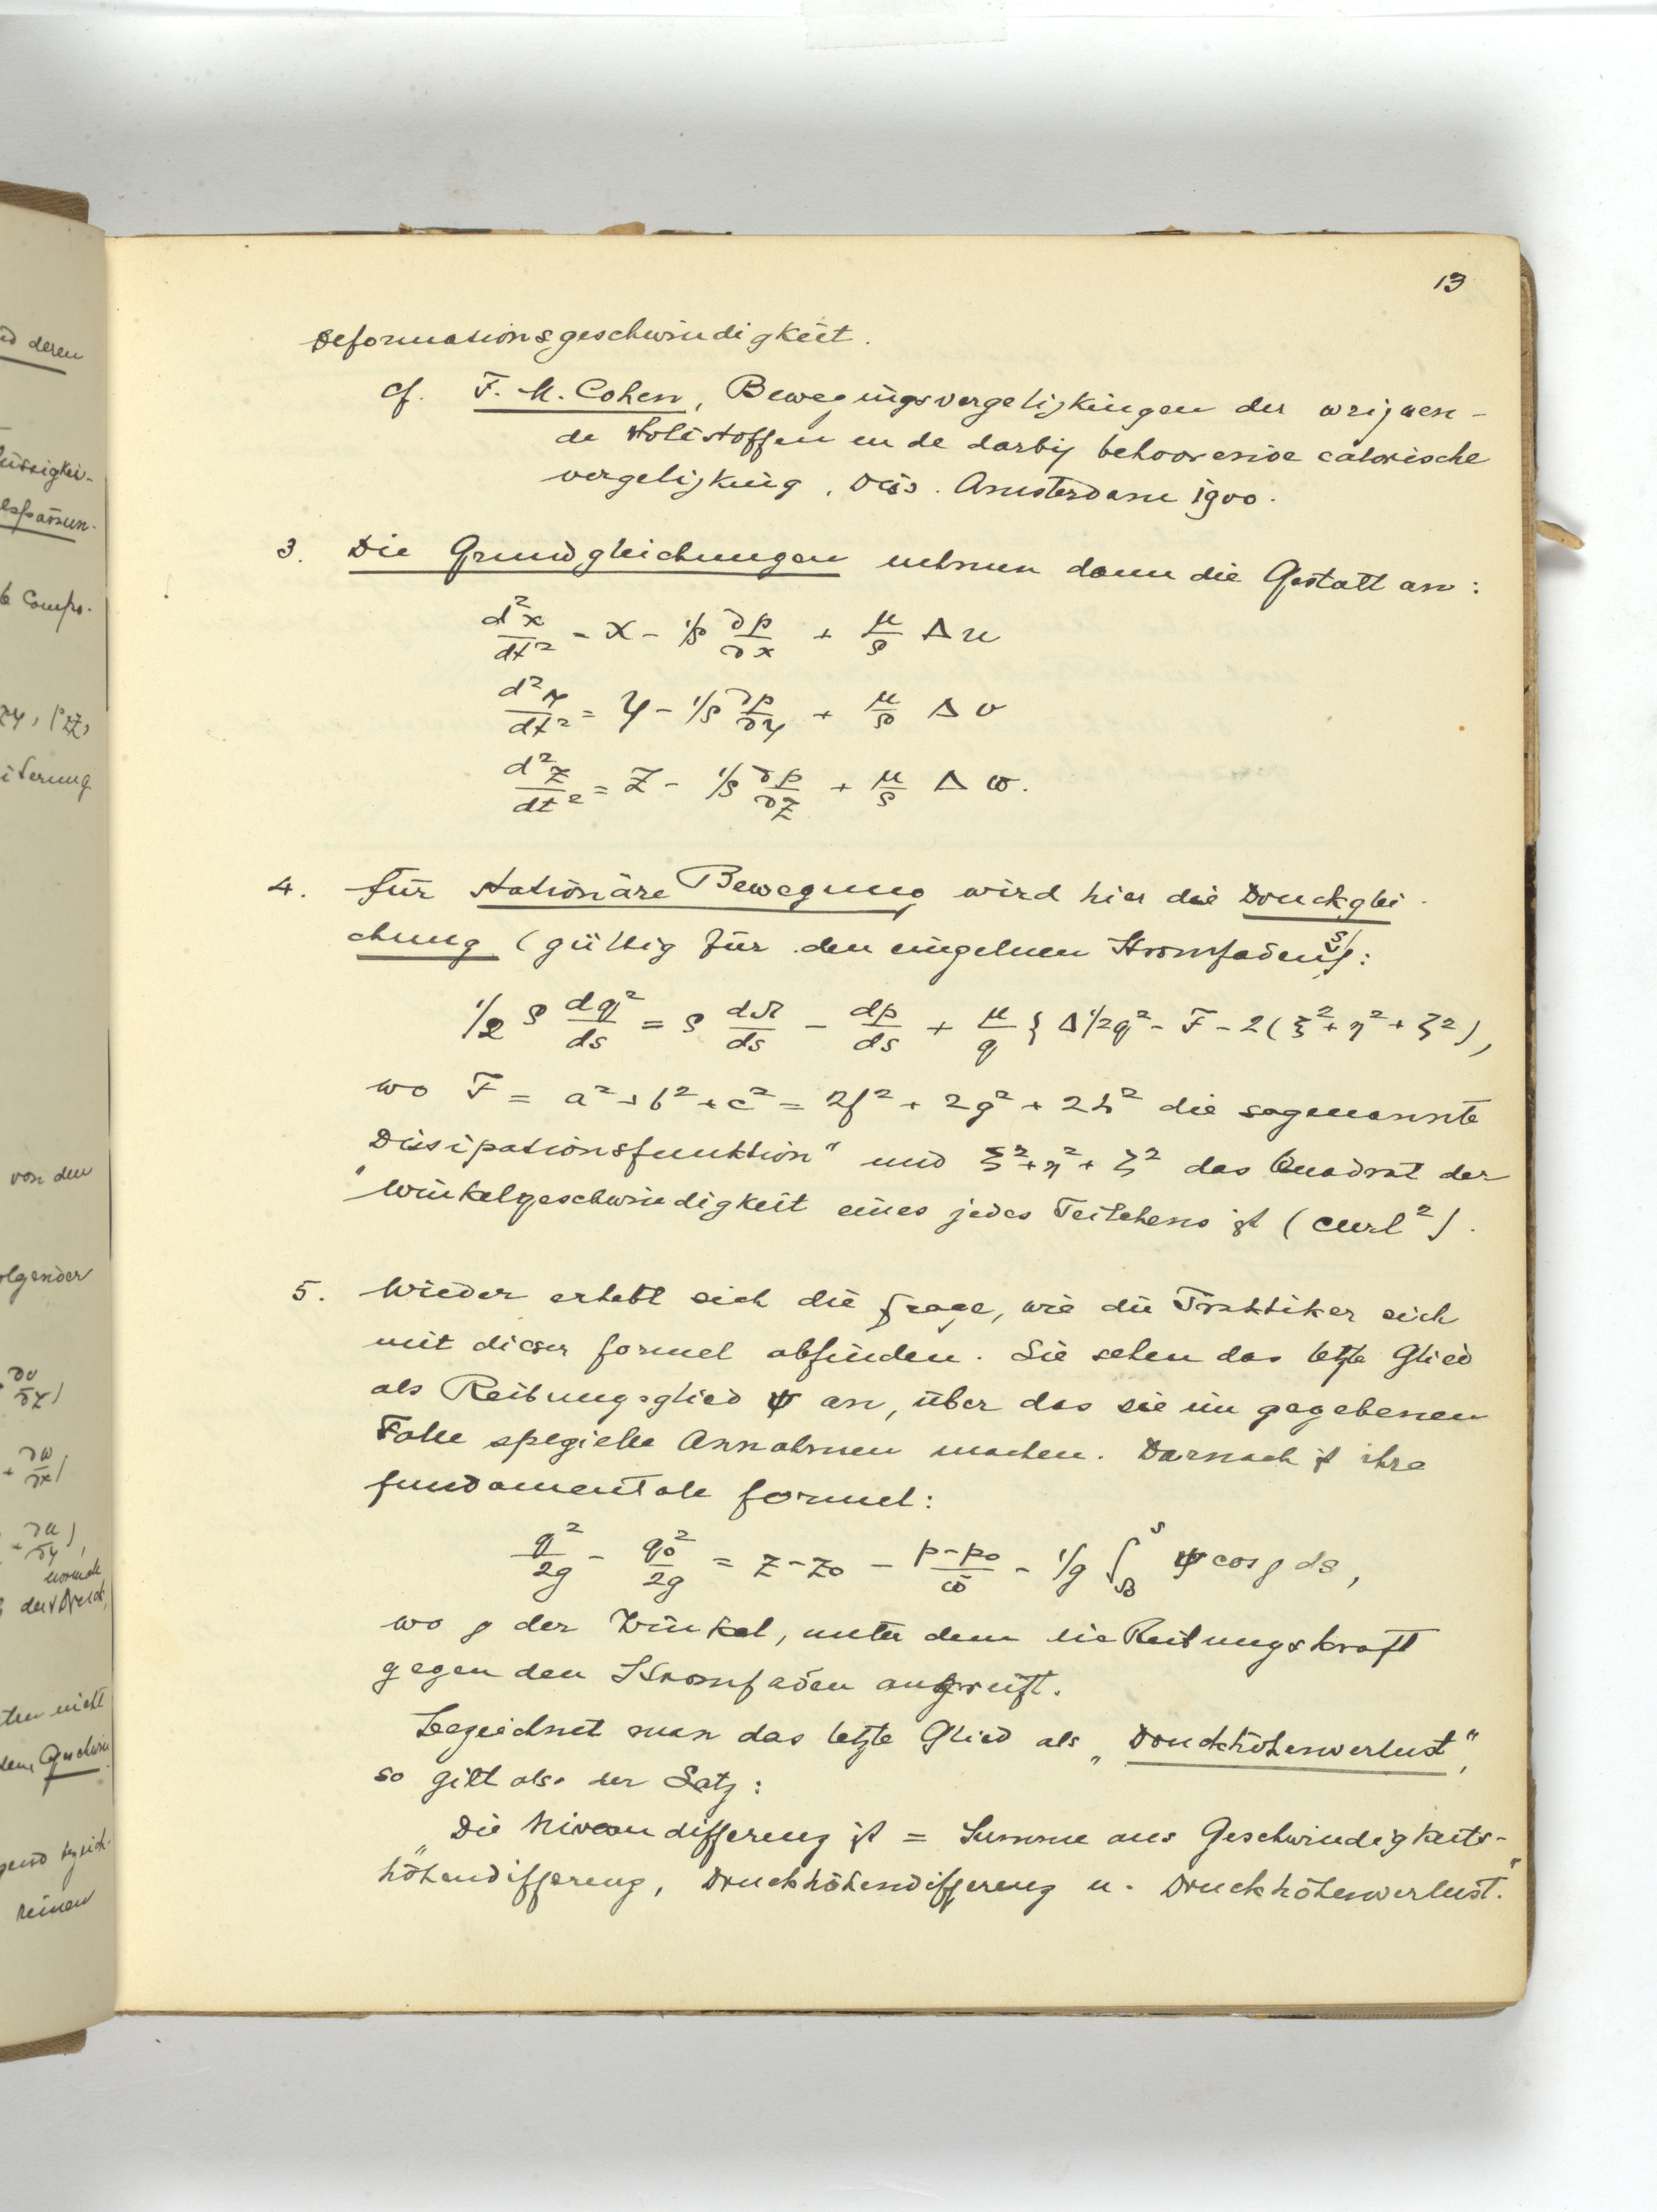 13
Deformationsgeschwindigkeit.
cf. F. M. Cohen, Bewegingsvergelijkingen der wrijven-
de vloeistoffen en de darbij behoorende calorische
vergelijking, Diss. Amsterdam 1900.
3. Die Grundgleichungen nehmen dann die Gestalt an:
d²x/dt² = X - 1/ρ ∂p/∂x + μ/ρ Δu
d²y/dt² = Y - 1/ρ ∂p/∂y + μ/ρ Δv
d²z/dt² = Z - 1/ρ ∂p/∂z + μ/ρ Δw.
4. Für stationäre Bewegung wird hier die Druckglei-
chung (gültig für den einzelnen Stromfaden s):
1/2 ρ dq²/ds = ρ dΩ/ds - dp/ds + μ/q { Δ 1/2 q² - F - 2(ξ² + η² + ζ²),
wo F = a² + b² + c² = 2f² + 2g² + 2h² die sogenannte
„Dissipationsfunktion“ und ξ² + η² + ζ² das Quadrat der
Winkelgeschwindigkeit eines jedes Teilchens ist (curl²).
5. Wieder erhebt sich die Frage, wie die Praktiker sich
mit dieser Formel abfinden. Sie sehen das letzte Glied
als Reibungsglied ψ an, über das sie im gegebenen
Falle spezielle Annahmen machen. Darnach ist ihre
fundamentale Formel:
q²/2g - q₀²/2g = z - z₀ - (p - p₀)/ω̄ - 1/g ∫ₛ₀ˢ ψ cos ρ ds,
wo ρ der Winkel, unter dem die Reibungskraft
gegen den Stromfaden angreift.
Bezeichnet man das letzte Glied als „Druckhöhenverlust“,
so gilt also der Satz:
„Die Niveaudifferenz ist = Summe aus Geschwindigkeits-
höhendifferenz, Druckhöhendifferenz u. Druckhöhenverlust.“
nd deren
von den
olgender
dem Geschwin
reinen